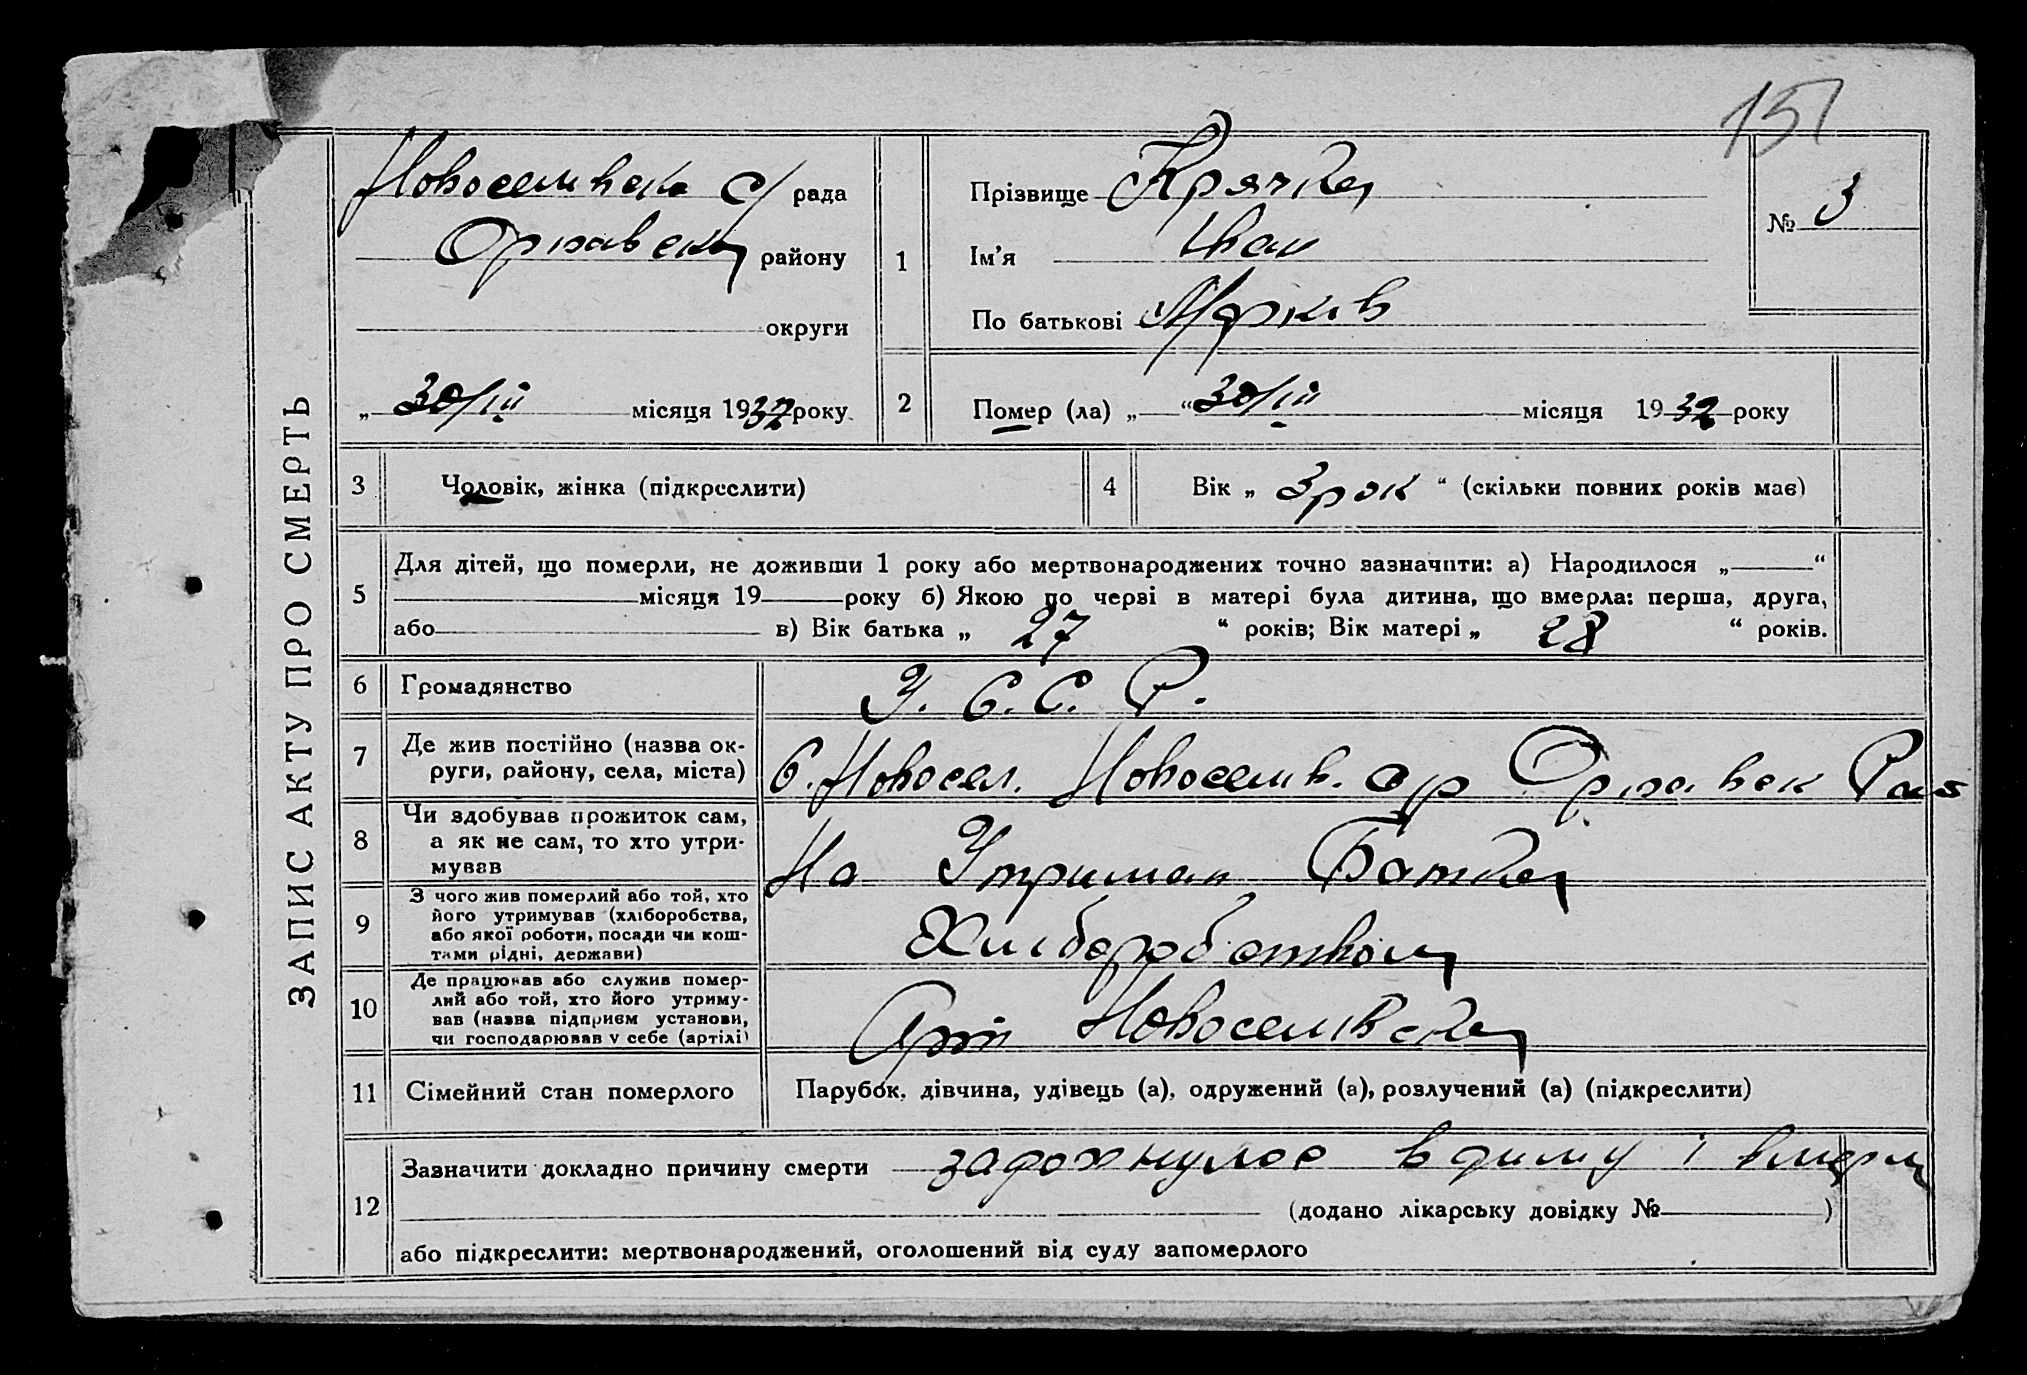 151
ЗАПИС АКТУ ПРО СМЕРТЬ
Новоселівска С/рада
району
округи
„30/III місяця 1932 року
1
Прізвище Крячко
Ім'я Іван
По батькові Марків
№ 3
2
Помер (ла) „ “ 30/III місяця 1932 року
3 Чоловік, жінка (підкреслити)
4 Вік „ 3 рок “ (скільки повних років має)
5 Для дітей, що померли, не доживши 1 року або мертвонароджених точно зазначити: а) Народилося „ “
місяця 19 року б) Якою по черзі в матері була дитина, що вмерла: перша, друга,
або в) Вік батька „ 27 “ років; Вік матері „ 28 “ років.
6 Громадянство У.С.С.Р.
7 Де жив постійно (назва ок-
руги, району, села, міста)
С. Новосел. Новоселів. с/р
8 Чи здобував прожиток сам,
а як не сам, то хто утри-
мував
На Утриман Батька
9 З чого жив померлий або той, хто
його утримував (хліборобства,
або якої роботи, посади чи кош-
тами рідні, держави)
Хліборобством
10 Де працював або служив помер-
лий або той, хто його утриму-
вав (назва підприєм установи,
чи господарював у себе (артілі)
Арт Новоселівска
11 Сімейний стан померлого Парубок, дівчина, удівець (а), одружений (а), розлучений (а) (підкреслити)
12 Зазначити докладно причину смерти задохнулос в диму і вмерл
(додано лікарську довідку № )
або підкреслити: мертвонароджений, оголошений від суду запомерлого